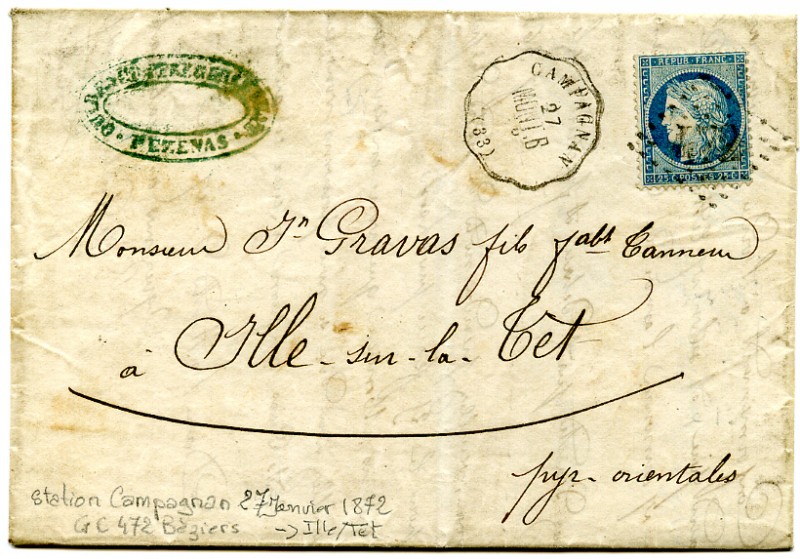 PEZENAS
CAMPAGNAN
27
(33)
REPUB. FRANC.
25 C. POSTES 25 C.
Monsieur Jn Gravas fils fabt Tanneur
à Ille-sur-la-Tet
pyr-orientales
station Campagnan 27 Janvier 1872
GC 472 Béziers → Ille/Tet